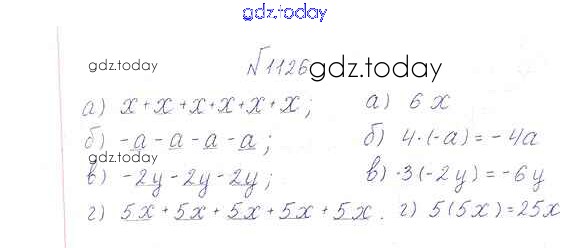 gdz.today
gdz.today
№1126
gdz.today
а) x+x+x+x+x+x; а) 6x
б) -a-a-a-a; б) 4·(-a)=-4a
gdz.today
в) -2y-2y-2y; в) ·3(-2y)=-6y
г) 5x+5x+5x+5x+5x. г) 5(5x)=25x